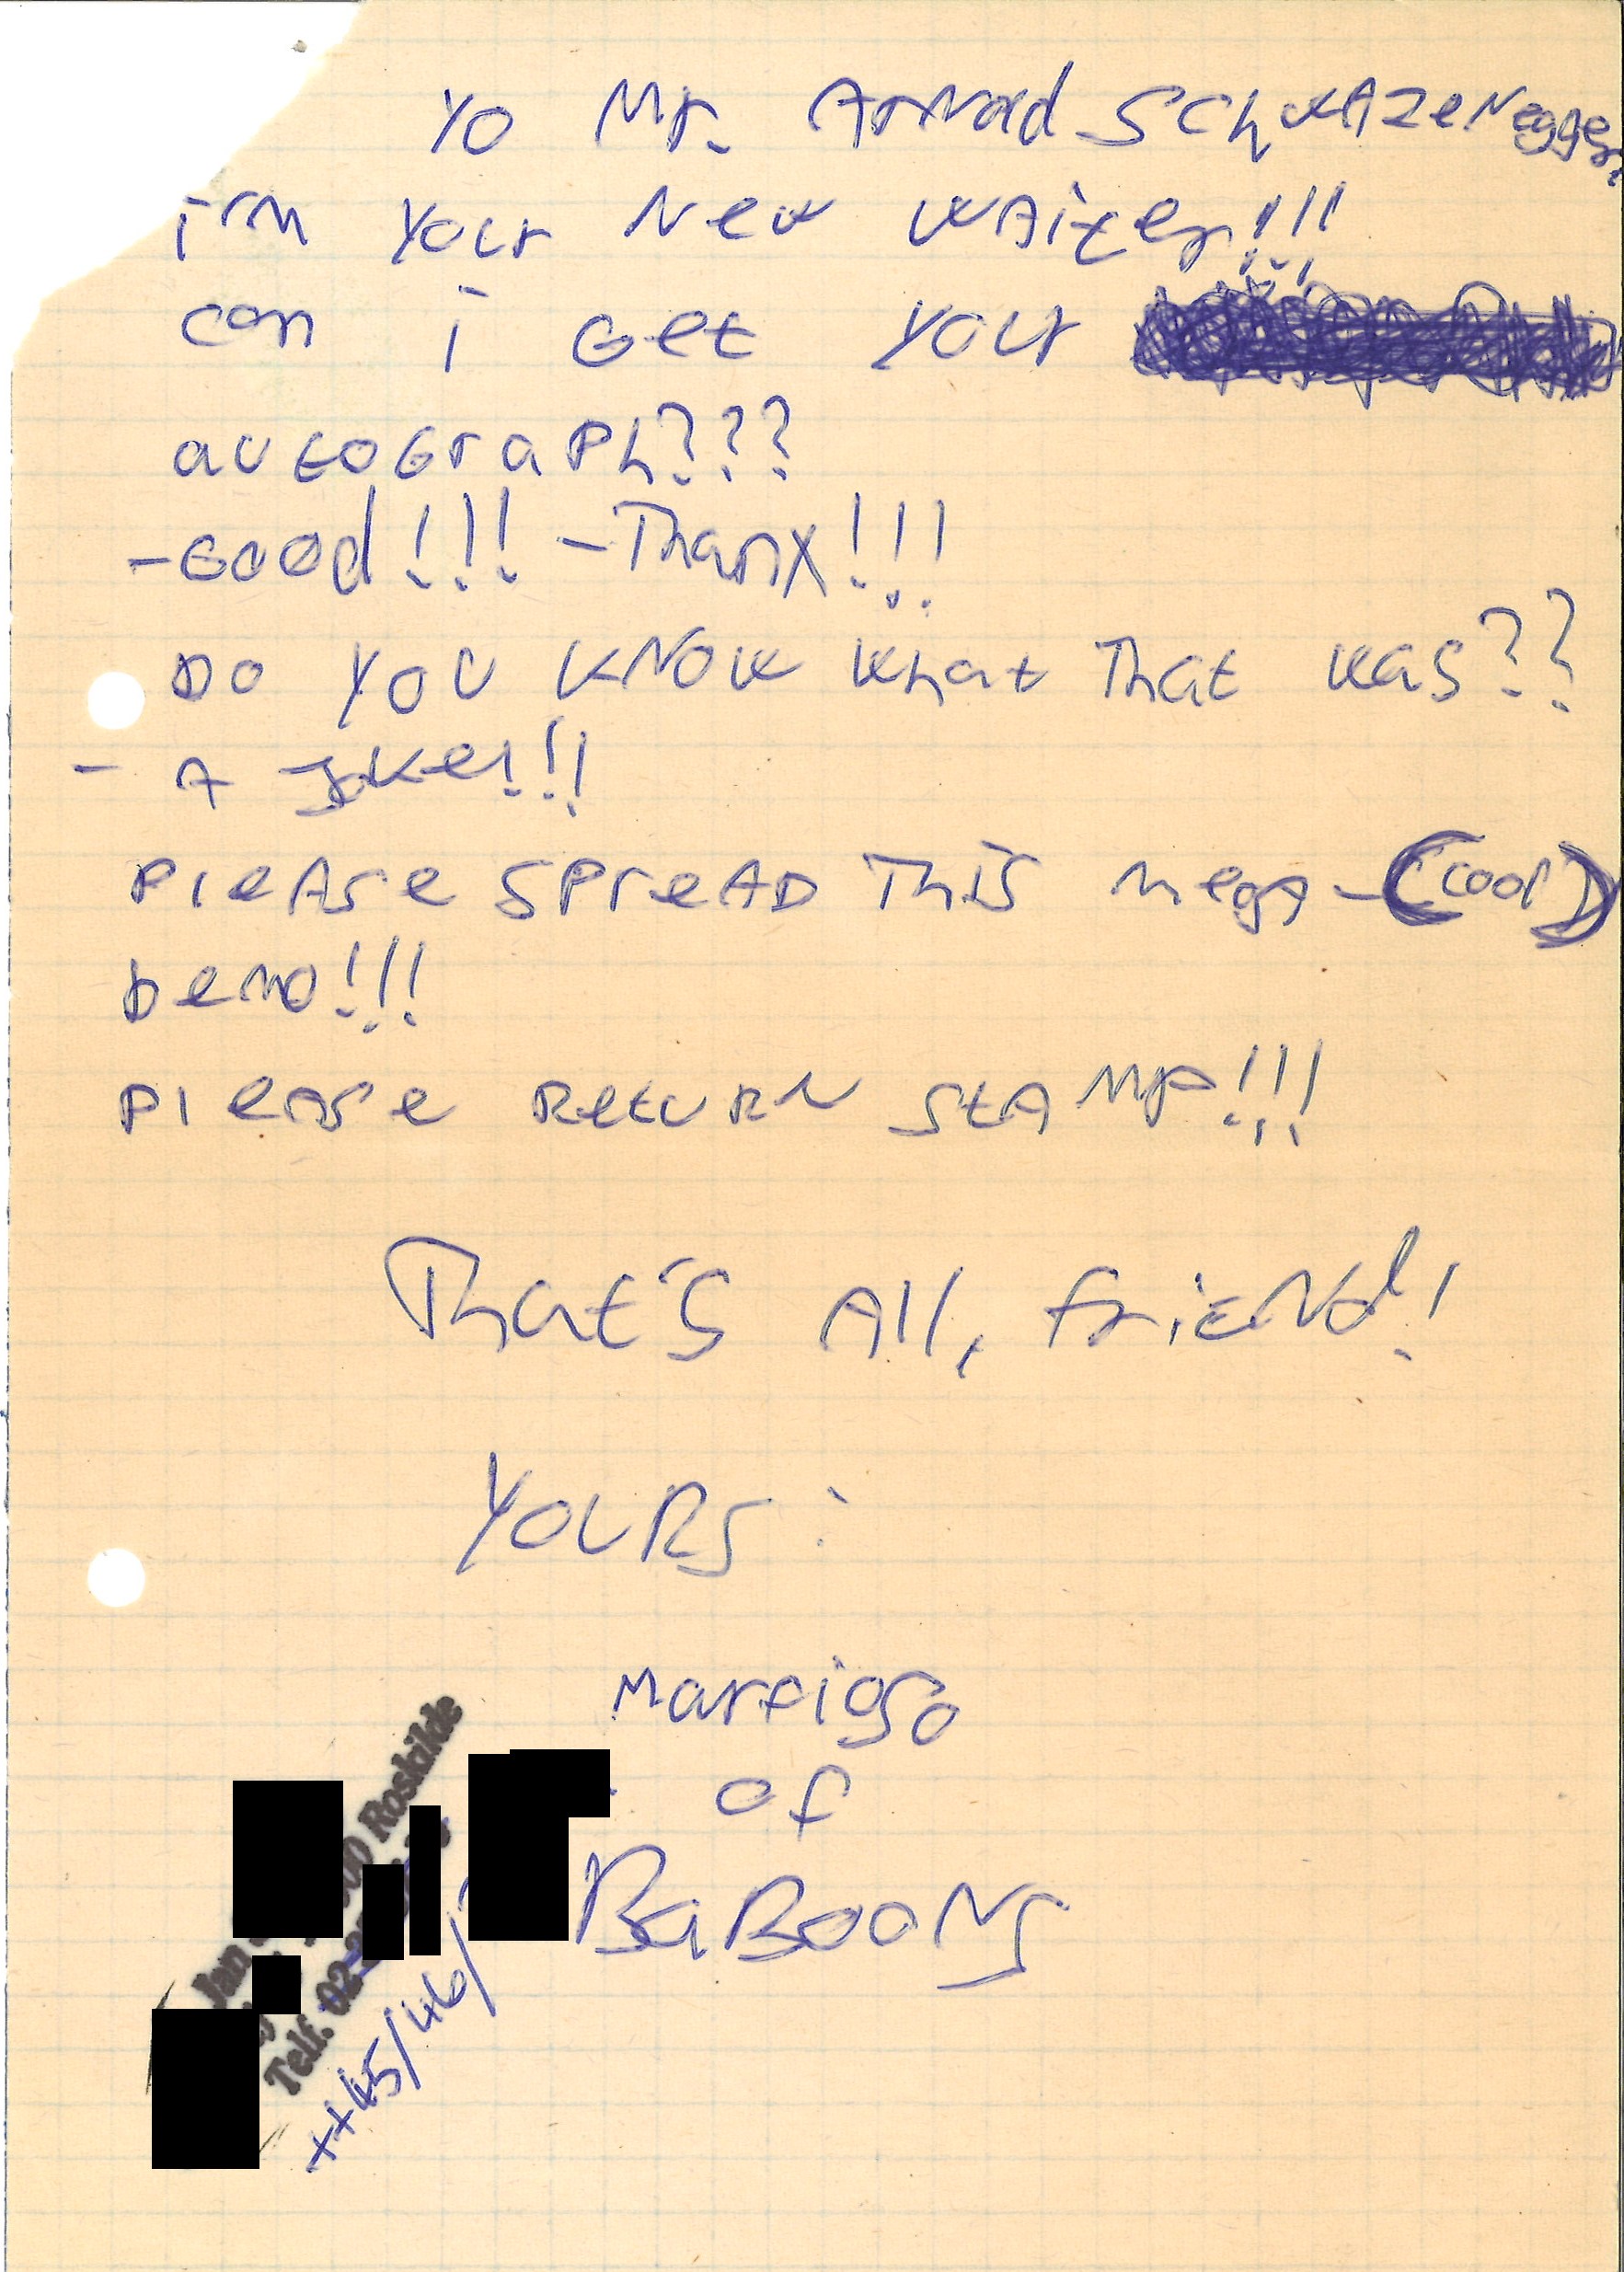 Yo Mr. Arnold Schwazenegger,
i'm your new waiter!!!
can i get your
autograph???
-Good!!! -Thanx!!!
Do you know what that was??
- A joke!!!
Please spread this mega-(cool)
Demo!!!
Please return stamp!!!
That's all, friend!!
Yours:
of
Baboons
Jan
Roskilde
Telf. 02
++45/46/